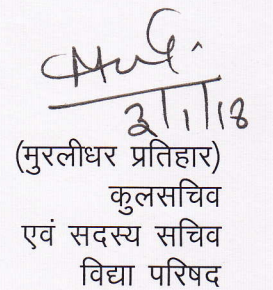 3/1/18
(मुरलीधर प्रतिहार)
कुलसचिव
एवं सदस्य सचिव
विद्या परिषद